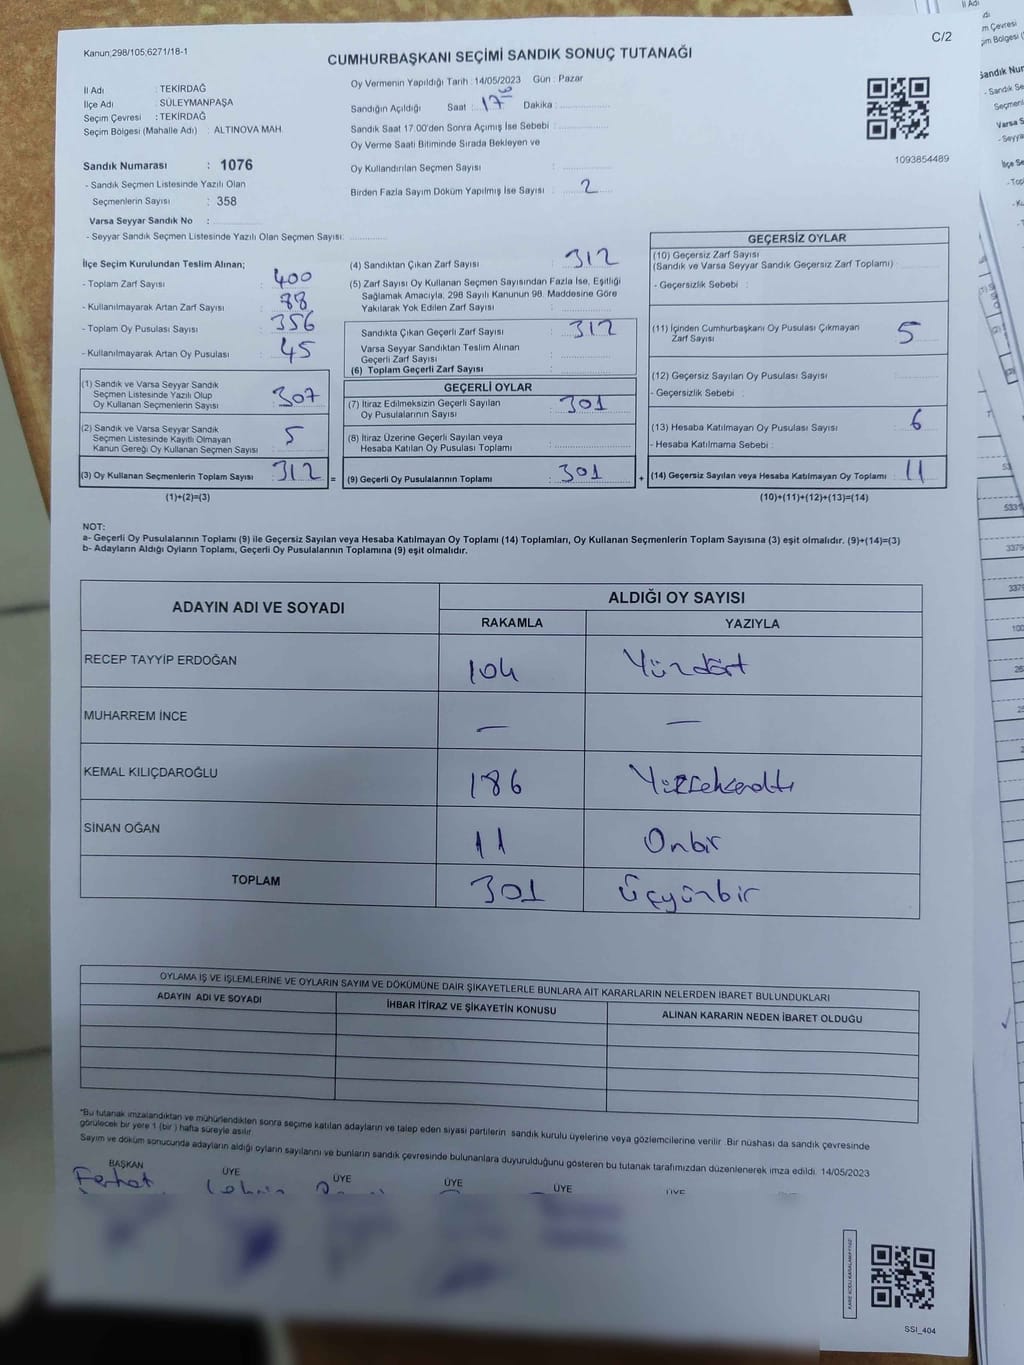 Kanun;298/105,6271/18-1
C/2
CUMHURBAŞKANI SEÇİMİ SANDIK SONUÇ TUTANAĞI
İl Adı : TEKİRDAĞ
İlçe Adı : SÜLEYMANPAŞA
Seçim Çevresi : TEKİRDAĞ
Seçim Bölgesi (Mahalle Adı) : ALTINOVA MAH.
Sandık Numarası : 1076
- Sandık Seçmen Listesinde Yazılı Olan
Seçmenlerin Sayısı : 358
Varsa Seyyar Sandık No :
- Seyyar Sandık Seçmen Listesinde Yazılı Olan Seçmen Sayısı:
Oy Vermenin Yapıldığı Tarih : 14/05/2023 Gün : Pazar
Sandığın Açıldığı Saat : 17 Dakika :
Sandık Saat 17.00'den Sonra Açımış İse Sebebi :
Oy Verme Saati Bitiminde Sırada Bekleyen ve
Oy Kullandırılan Seçmen Sayısı :
Birden Fazla Sayım Döküm Yapılmış İse Sayısı : 2
1093854489
İlçe Seçim Kurulundan Teslim Alınan;
- Toplam Zarf Sayısı : 400
- Kullanılmayarak Artan Zarf Sayısı : 88
- Toplam Oy Pusulası Sayısı : 356
- Kullanılmayarak Artan Oy Pusulası : 45
(1) Sandık ve Varsa Seyyar Sandık
Seçmen Listesinde Yazılı Olup
Oy Kullanan Seçmenlerin Sayısı : 307
(2) Sandık ve Varsa Seyyar Sandık
Seçmen Listesinde Kayıtlı Olmayan
Kanun Gereği Oy Kullanan Seçmen Sayısı : 5
(3) Oy Kullanan Seçmenlerin Toplam Sayısı : 312 =
(1)+(2)=(3)
(4) Sandıktan Çıkan Zarf Sayısı : 312
(5) Zarf Sayısı Oy Kullanan Seçmen Sayısından Fazla İse, Eşitliği
Sağlamak Amacıyla; 298 Sayılı Kanunun 98. Maddesine Göre
Yakılarak Yok Edilen Zarf Sayısı :
Sandıkta Çıkan Geçerli Zarf Sayısı : 312
Varsa Seyyar Sandıktan Teslim Alınan
Geçerli Zarf Sayısı :
(6) Toplam Geçerli Zarf Sayısı :
GEÇERLİ OYLAR
(7) İtiraz Edilmeksizin Geçerli Sayılan
Oy Pusulalarının Sayısı : 301
(8) İtiraz Üzerine Geçerli Sayılan veya
Hesaba Katılan Oy Pusulası Toplamı :
(9) Geçerli Oy Pusulalarının Toplamı : 301 +
GEÇERSİZ OYLAR
(10) Geçersiz Zarf Sayısı
(Sandık ve Varsa Seyyar Sandık Geçersiz Zarf Toplamı) :
- Geçersizlik Sebebi :
(11) İçinden Cumhurbaşkanı Oy Pusulası Çıkmayan
Zarf Sayısı : 5
(12) Geçersiz Sayılan Oy Pusulası Sayısı :
- Geçersizlik Sebebi :
(13) Hesaba Katılmayan Oy Pusulası Sayısı : 6
- Hesaba Katılmama Sebebi :
(14) Geçersiz Sayılan veya Hesaba Katılmayan Oy Toplamı : 11
(10)+(11)+(12)+(13)=(14)
NOT:
a- Geçerli Oy Pusulalarının Toplamı (9) ile Geçersiz Sayılan veya Hesaba Katılmayan Oy Toplamı (14) Toplamları, Oy Kullanan Seçmenlerin Toplam Sayısına (3) eşit olmalıdır. (9)+(14)=(3)
b- Adayların Aldığı Oyların Toplamı, Geçerli Oy Pusulalarının Toplamına (9) eşit olmalıdır.
ADAYIN ADI VE SOYADI ALDIĞI OY SAYISI
RAKAMLA YAZIYLA
RECEP TAYYİP ERDOĞAN 104 Yüzdört
MUHARREM İNCE — —
KEMAL KILIÇDAROĞLU 186 Yüzseksenaltı
SİNAN OĞAN 11 Onbir
TOPLAM 301 Üçyüzbir
OYLAMA İŞ VE İŞLEMLERİNE VE OYLARIN SAYIM VE DÖKÜMÜNE DAİR ŞİKAYETLERLE BUNLARA AİT KARARLARIN NELERDEN İBARET BULUNDUKLARI
ADAYIN ADI VE SOYADI İHBAR İTİRAZ VE ŞİKAYETİN KONUSU ALINAN KARARIN NEDEN İBARET OLDUĞU
*Bu tutanak imzalandıktan ve mühürlendikten sonra seçime katılan adayların ve talep eden siyasi partilerin sandık kurulu üyelerine veya gözlemcilerine verilir. Bir nüshası da sandık çevresinde
görülecek bir yere 1 (bir) hafta süreyle asılır.
Sayım ve döküm sonucunda adayların aldığı oyların sayılarını ve bunların sandık çevresinde bulunanlara duyurulduğunu gösteren bu tutanak tarafımızdan düzenlenerek imza edildi. 14/05/2023
BAŞKAN ÜYE ÜYE ÜYE ÜYE ÜYE
Ferhat
SSI_404